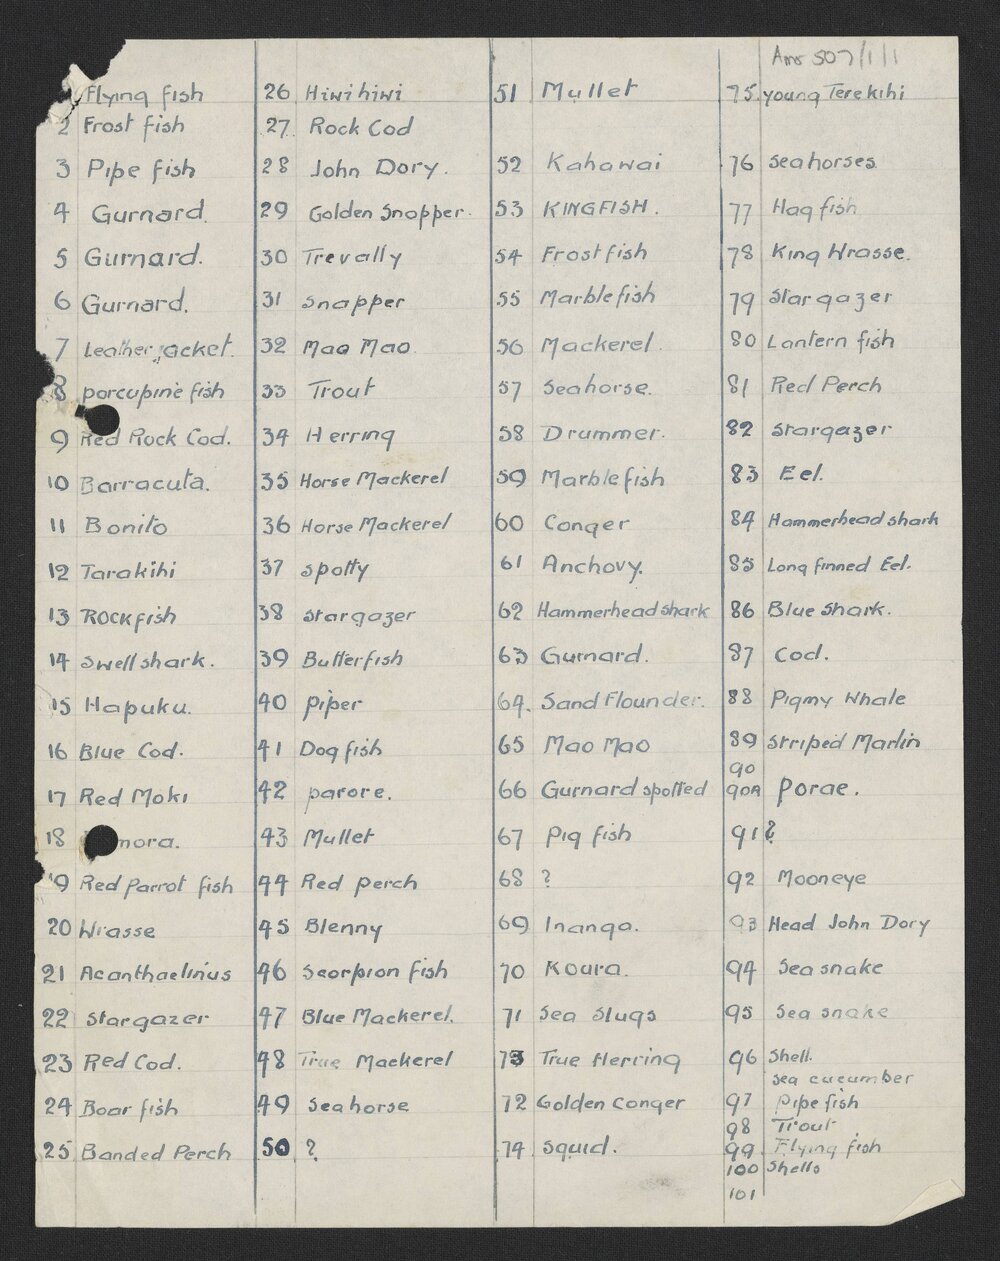 Ams 507/1/1
Flying fish
2 Frost fish
3 Pipe fish
4 Gurnard.
5 Gurnard.
6 Gurnard.
7 Leather jacket.
8 porcupine fish
9 Red Rock Cod.
10 Barracuta.
11 Bonito
12 Tarakihi
13 Rockfish
14 Swell shark.
15 Hapuku.
16 Blue Cod.
17 Red Moki
18 mora.
19 Red Parrot fish
20 Wrasse
21 Acanthaelinus
22 Stargazer
23 Red Cod.
24 Boar fish
25 Banded Perch
26 Hiwihiwi
27. Rock Cod
28 John Dory.
29 Golden Snapper.
30 Trevally
31 Snapper
32 Mao Mao.
33 Trout
34 Herring
35 Horse Mackerel
36 Horse Mackerel
37 Spotty
38 Stargazer
39 Butterfish
40 Piper
41 Dog fish
42 parore.
43 Mullet
44 Red perch
45 Blenny
46 Scorpion fish
47 Blue Mackerel.
48 True Mackerel
49 Seahorse
50 ?
51 Mullet
52 Kahawai
53 KINGFISH.
54 Frostfish
55 Marblefish
56 Mackerel.
57 Seahorse.
58 Drummer.
59 Marblefish
60 Conger
61 Anchovy.
62 Hammerhead shark
63 Gurnard.
64. Sand Flounder.
65 Mao Mao
66 Gurnard spotted
67 Pig fish
68 ?
69 Inanga.
70 Koura.
71 Sea Slugs
73 True Herring
72 Golden Conger
74 Squid.
75. young Terekihi
76 Seahorses.
77 Hag fish
78 King Wrasse.
79 Stargazer
80 Lantern fish
81 Red Perch
82 Stargazer
83 Eel.
84 Hammerhead shark
85 Long finned Eel.
86 Blue Shark.
87 Cod.
88 Pigmy Whale
89 Striped Marlin
90
90A Porae.
91 ?
92 Mooneye
93 Head John Dory
94 Sea snake
95 Sea snake
96 Shell.
Sea cucumber
97 Pipefish
98 Trout.
99 Flying fish
100 Shells
101